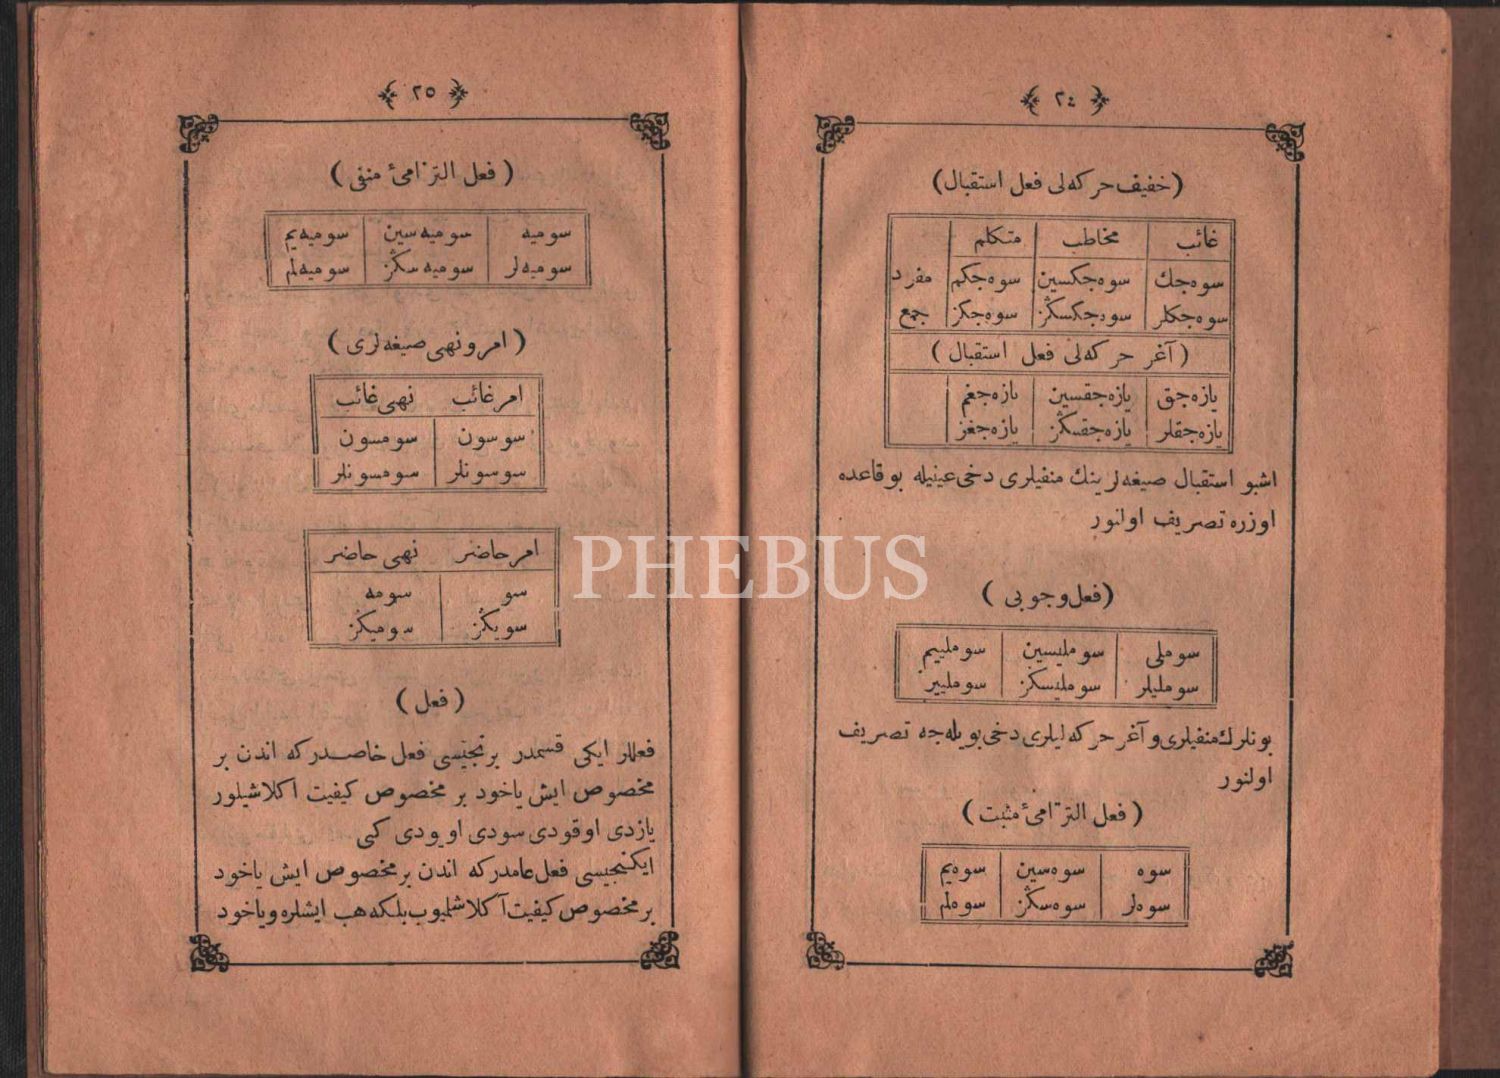 ٢٤
(خفيف حركه‌لى فعل استقبال)
غائب مخاطب متكلم
سوه‌جك سوه‌جكسين سوه‌جكم مفرد
سوه‌جكلر سوه‌جكسڭز سوه‌جكز جمع
(آغر حركه‌لى فعل استقبال)
يازه‌جق يازه‌جقسين يازه‌جغم
يازه‌جقلر يازه‌جقسڭز يازه‌جغز
اشبو استقبال صيغه‌لرينك منفيلرى دخى عينيله بو قاعده
اوزره تصريف اولنور
(فعل وجوبى)
سوملى سومليسين سومليیم
سومليلر سومليسڭز سومليیز
بونلرك منفيلرى و آغر حركه‌ليلرى دخى بويله‌جه تصريف
اولنور
(فعل التزامئ مثبت)
سوه سوه‌سين سوه‌يم
سوه‌لر سوه‌سڭز سوه‌لم
٢٥
(فعل التزامئ منفى)
سوميه سوميه‌سين سوميه‌يم
سوميه‌لر سوميه‌سڭز سوميه‌لم
(امر و نهى صيغه‌لرى)
امر غائب نهى غائب
سوسون سومسون
سوسونلر سومسونلر
امر حاضر نهى حاضر
سو سومه
سويڭز سوميڭز
(فعل)
فعللر ايكى قسمدر برنجيسى فعل خاصدركه اندن بر
مخصوص ايش ياخود بر مخصوص كيفيت اكلاشيلور
يازدى اوقودى سودى اويودى كبى
ايكنجيسى فعل عامدركه اندن بر مخصوص ايش ياخود
بر مخصوص كيفيت آكلاشلميوب بلكه هب ايشلره وياخود
PHEBUS